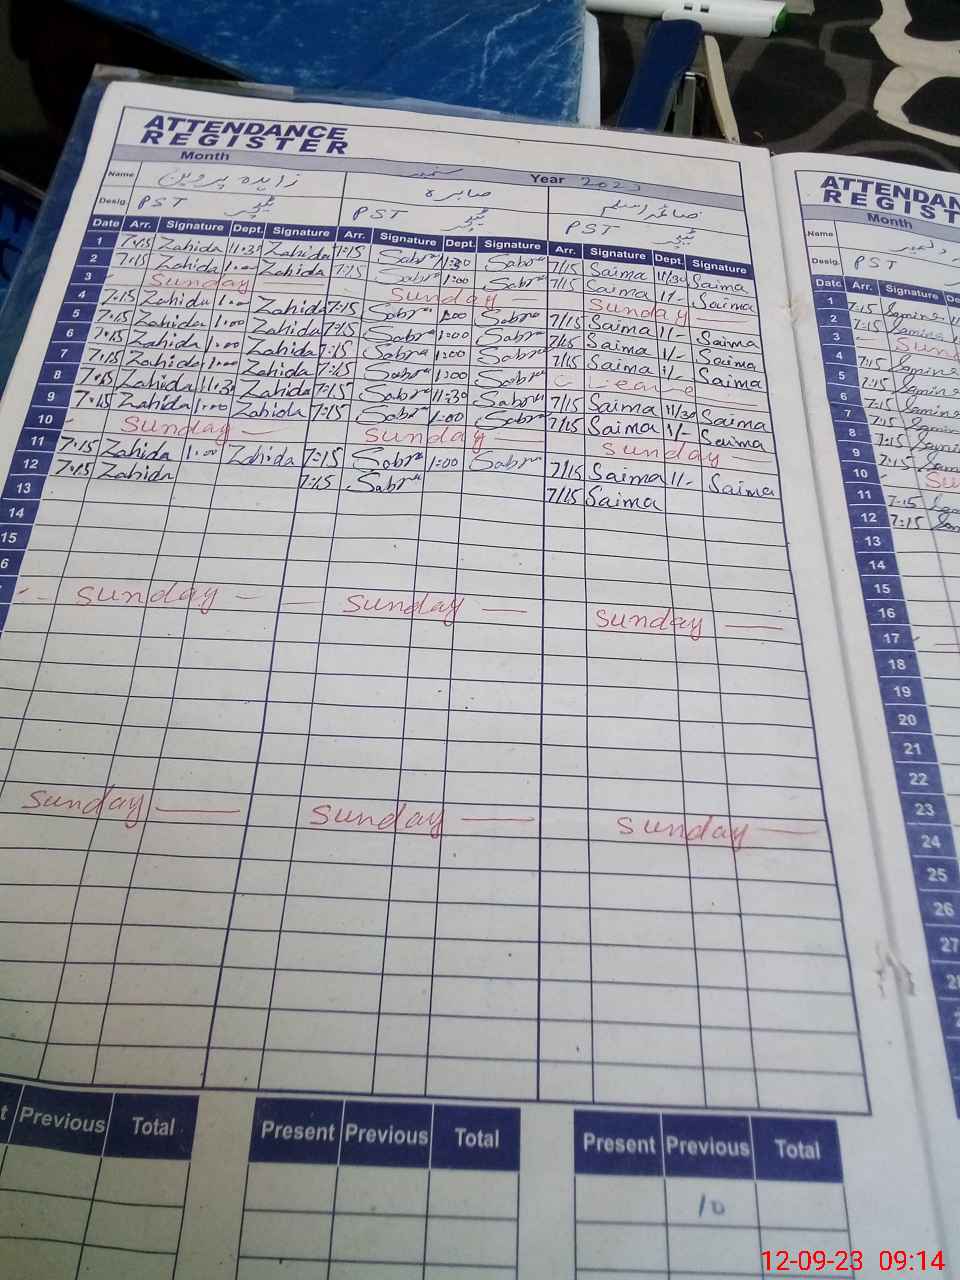 ATTENDANCE
REGISTER
Month ستمبر Year 2023
Name زاہدہ پروین صابرہ صائمہ اسلم
Desig. PST ٹیچر PST ٹیچر PST ٹیچر
Date Arr. Signature Dept. Signature Arr. Signature Dept. Signature Arr. Signature Dept. Signature
1 7:15 Zahida 11:30 Zahida 7:15 Sabra 11:30 Sabra 7/15 Saima 11/30 Saima
2 7:15 Zahida 1:00 Zahida 7:15 Sabra 1:00 Sabra 7/15 Saima 1/- Saima
3 Sunday Sunday Sunday
4 7:15 Zahida 1:00 Zahida 7:15 Sabra 1:00 Sabra 7/15 Saima 1/- Saima
5 7:15 Zahida 1:00 Zahida 7:15 Sabra 1:00 Sabra 7/15 Saima 1/- Saima
6 7:15 Zahida 1:00 Zahida 7:15 Sabra 1:00 Sabra 7/15 Saima 1/- Saima
7 7:15 Zahida 1:00 Zahida 7:15 Sabra 1:00 Sabra Leave
8 7:15 Zahida 11:30 Zahida 7:15 Sabra 11:30 Sabra 7/15 Saima 11/30 Saima
9 7:15 Zahida 1:00 Zahida 7:15 Sabra 1:00 Sabra 7/15 Saima 1/- Saima
10 Sunday Sunday Sunday
11 7:15 Zahida 1:00 Zahida 7:15 Sabra 1:00 Sabra 7/15 Saima 1/- Saima
12 7:15 Zahida 7:15 Sabra 7/15 Saima
13
14
15
6
Sunday Sunday Sunday
Sunday Sunday Sunday
Previous Total Present Previous Total Present Previous Total
10
ATTENDAN
REGIST
Month
Name
Desig. PST
Date Arr. Signature
1 7:15 Samin
2 7:15 Samin
3 Sun
4 7:15 Samin
5 7:15 Samin
6 7:15 Samin
7 7:15 Samin
8 7:15 Samin
9 7:15 Sam
10 Su
11 7:15
12 7:15
13
14
15
16
17
18
19
20
21
22
23
24
25
26
27
12-09-23 09:14